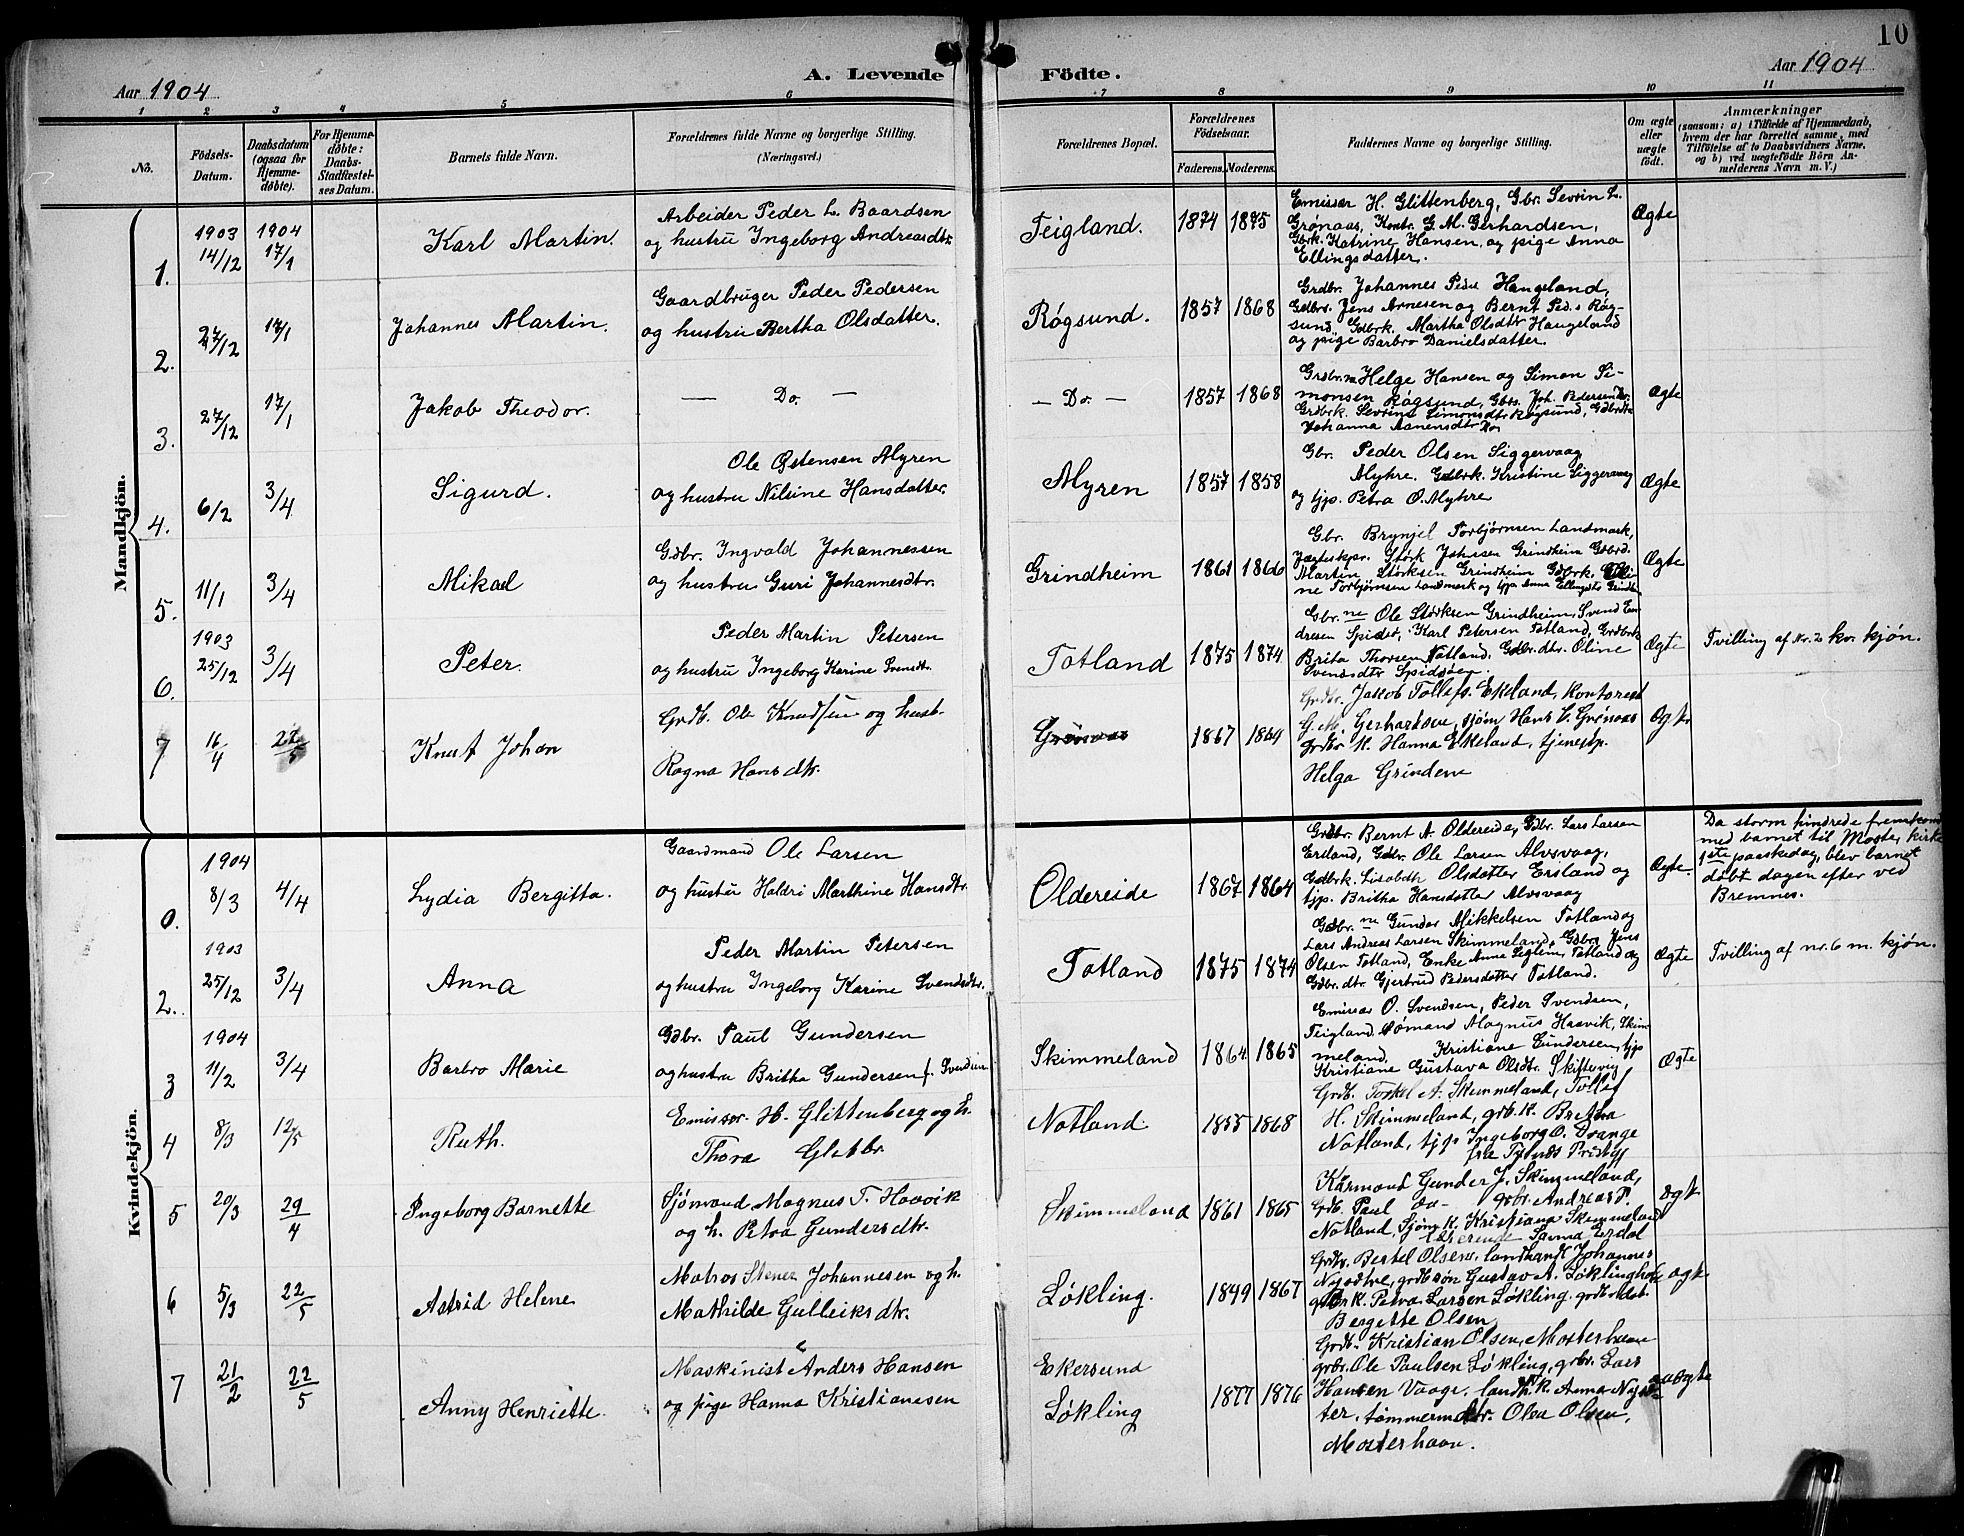 10
Aar 1904
A. Levende Födte.
Aar 1904
1 2 3 4 5 6 7 8 9 10 11
No.
Födsels-
Datum.
Daabsdatum
(ogsaa for
Hjemme-
döbte).
For Hjemme-
döbte:
Daabs-
Stadfæstel-
ses Datum.
Barnets fulde Navn.
Forældrenes fulde Navne og borgerlige Stilling.
(Næringsvei.)
Forældrenes Bopæl.
Forældrenes
Födselsaar.
Faderens. Moderens.
Faddernes Navne og borgerlige Stilling.
Om ægte
eller
uægte
födt.
Anmærkninger
(saasom: a) i Tilfælde af Hjemmedaab,
hvem der har forrettet samme, med
Tilföielse af to Daabsvidners Navne,
og b) ved uægtefödte Börn An-
melderens Navn m. V.)
Mandkjön.
1.
1903
14/12
1904
17/1
Karl Martin.
Arbeider Peder L. Baardsen
og hustru Ingeborg Andreasdtr.
Teigland.
1874 1875
Emissær H. Glittenberg, Gbr. Sevrin L.
Grønaas, Kontr. G. M. Gerhardsen,
Gbrk. Katrine Hansen, og pige Anna
Ellingsdatter.
Ægte
2.
27/12
17/1
Johannes Martin.
Gaardbruger Peder Pedersen
og hustru Bertha Olsdatter.
Røgsund.
1857 1868
Grdbr. Johannes Peder Haugeland,
Gdbrs. Jens Arnesen og Bernt Peds Røg-
sund, Gdbrk. Martha Olsdtr Haugeland
og pige Barbro Danielsdatter.
3.
27/12
17/1
Jakob Theodor.
— Do. —
— Do. —
1857 1868
Grdbr.ne Helge Hansen og Simon Si-
monsen Røgsund, Gbrs. Joh. Pedersen Do.
Grdbrk. Sevrine Simonsdtr Røgsund, Gdbrdtr
Johanna Aanensdtr Do
Ægte
4.
6/2
3/4
Sigurd.
Ole Østensen Myren
og hustru Nilsine Hansdatter.
Myren
1857 1858
Gbr. Peder Olsen Siggervaag
Myhre. Gdbrk. Kristine Siggervaag
og tjp. Petra O. Myhre
Ægte
5.
11/1
3/4
Mikael
Gdbr. Ingvald Johannessen
og hustru Guri Johannesdtr.
Grindheim
1861 1866
Gbr. Brynjel Torbjørnsen Landmark,
Jægteskpr. Størk Johnsen Grindheim Gdbrd.
Martin Størksen Grindheim Gdbrk. Eli-
ne Torbjørnsen Landmark og tjp. Anna Ellingsdtr Grindh.
Ægte
6.
1903
25/12
3/4
Peter.
Peder Martin Petersen
og hustru Ingeborg Karine Svensdtr.
Totland
1875 1874
Gbr.ne Ole Størksen Grindheim, Svend En-
dresen Spidsø, Karl Petersen Totland, Grdbrk
Brita Thorsen Notland. Gdbr. dtr. Oline
Svendsdtr Spidsøen
Ægte
Tvilling af Nr. 2 kv. kjøn.
7
16/4
22/5
Knut Johan
Grdb. Ole Knudsen og hust.
Ragna Hansdtr.
Grønaas
1867 1864
Grdbr. Jakob Tollefs. Ekeland, kontorest
G. M. Gerhardsen, sjøm Hans L. Grønaas
grdbr k. Hanna Ekeland, tjenestp.
Helga Grindene
Ægte
Kvindekjön.
0.
1904
8/3
4/4
Lydia Bergitta.
Gaardmand Ole Larsen
og hustru Haldri Marthine Hansdtr.
Oldereide
1867 1864
Grdbr. Bernt A. Oldereide, Gdbr. Lars Larsen
Ersland, Gdbr. Ole Larsen Alvsvaag,
Gdbrk. Lisabeth Olsdatter Ersland og
tjp. Britha Hansdatter Alvsvaag
Ægte
Da storm hindrede fremkomst
med barnet til Moster kirke
1ste paaskedag, blev barnet
døbt dagen efter ved
Bremnes.
2.
1903
25/12
3/4
Anna
Peder Martin Petersen
og hustru Ingeborg Karine Svendsdtr.
Totland
1875 1874
Gdbr.ne Gunder Mikkelsen Totland og
Lars Andreas Larsen Skimmeland, Gdbrs Jens
Olsen Totland, Enke Anna Seglem, Totland og
Gdbr. dtr Gjertrud Pedersdatter Totland.
Ægte
Tvilling af nr. 6 m. kjøn.
3
1904
11/2
3/4
Barbro Marie
Gdbr. Paul Gundersen
og hustru Britha Gundersen f. Svendsen
Skimmeland
1864 1865
Emissær O. Svendsen, Peder Svendsen,
Teigland. Sømand Magnus Haavik, Skim-
meland. Kristiane Gundersen, tjp
Kristiane Gustava Olsdtr. Skiftevig
Ægte
4
8/3
12/5
Ruth.
Emissær H. Glittenberg og h.
Thora Glitbr.
Notland.
1855 1868
Grdb. Torkel A. Skimmeland, Tollef
H. Skimmeland, grb. k. Britha
Notland, tjp Ingeborg O. Drange
5
20/3
29/4
Ingeborg Barnette
Sjømand Magnus T. Haavik
og h. Petra Gundersdtr.
Skimmeland
1861 1865
Kaarmand Gunder J. Skimmeland,
Grdb. Paul do- grbr. Andreas P.
Notland, Sjøm k. Kristiana Skimmeland
Lærerinde Sanna Erdal
ægt.
6
5/3
22/5
Astrid Helene
Matros Stener Johannesen og h.
Mathilde Gulleiksdtr.
Løkling.
1849 1867
Grdbr. Bertel Olsen, landhandl Johannes
Nysæther, grdb søn Gustav A. Løklingholm
grdbr k. Petra Larsen Løkling. grdb. dat.
Bergitte Olsen
ægt.
7
21/2
22/5
Anny Henriette.
Maskinist Anders Hansen
og pige Hanna Kristianesen
Ekersund
Løkling
1877 1876
Grdb. Kristian Olsen, Mosterhavn
grbr. Ole Paulsen Løkling, grbr. Lars
Hansen Vaage. landh. k. Anna Nysæ-
ter. tømmermdtr. Olea Olsen,
Mosterhavn.
uægte